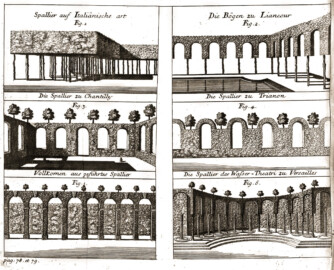 Spallier auf Italiänische art
Fig. 1.
Die Bögen zu Liancour
Fig. 2.
Die Spallier zu Chantilly
Fig. 3.
Die Spallier zu Trianon
Fig. 4.
Vollkomen aus geführtes Spallier
Fig. 5.
Die Spallier des Wasser-Theatri zu Versailles
Fig. 6.
pag. 78. et 79.